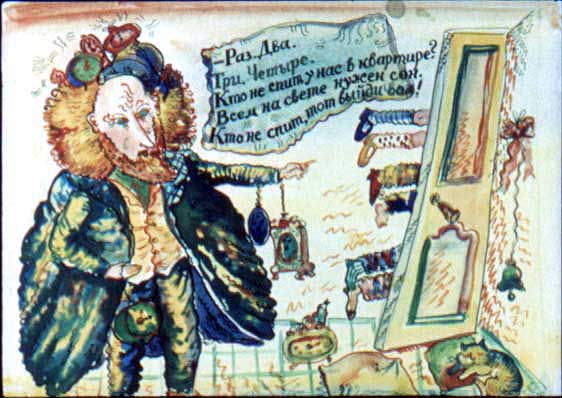 –Раз. Два.
Три. Четыре.
Кто не спит у нас в квартире?
Всем на свете нужен сон.
Кто не спит, тот выйди вон!